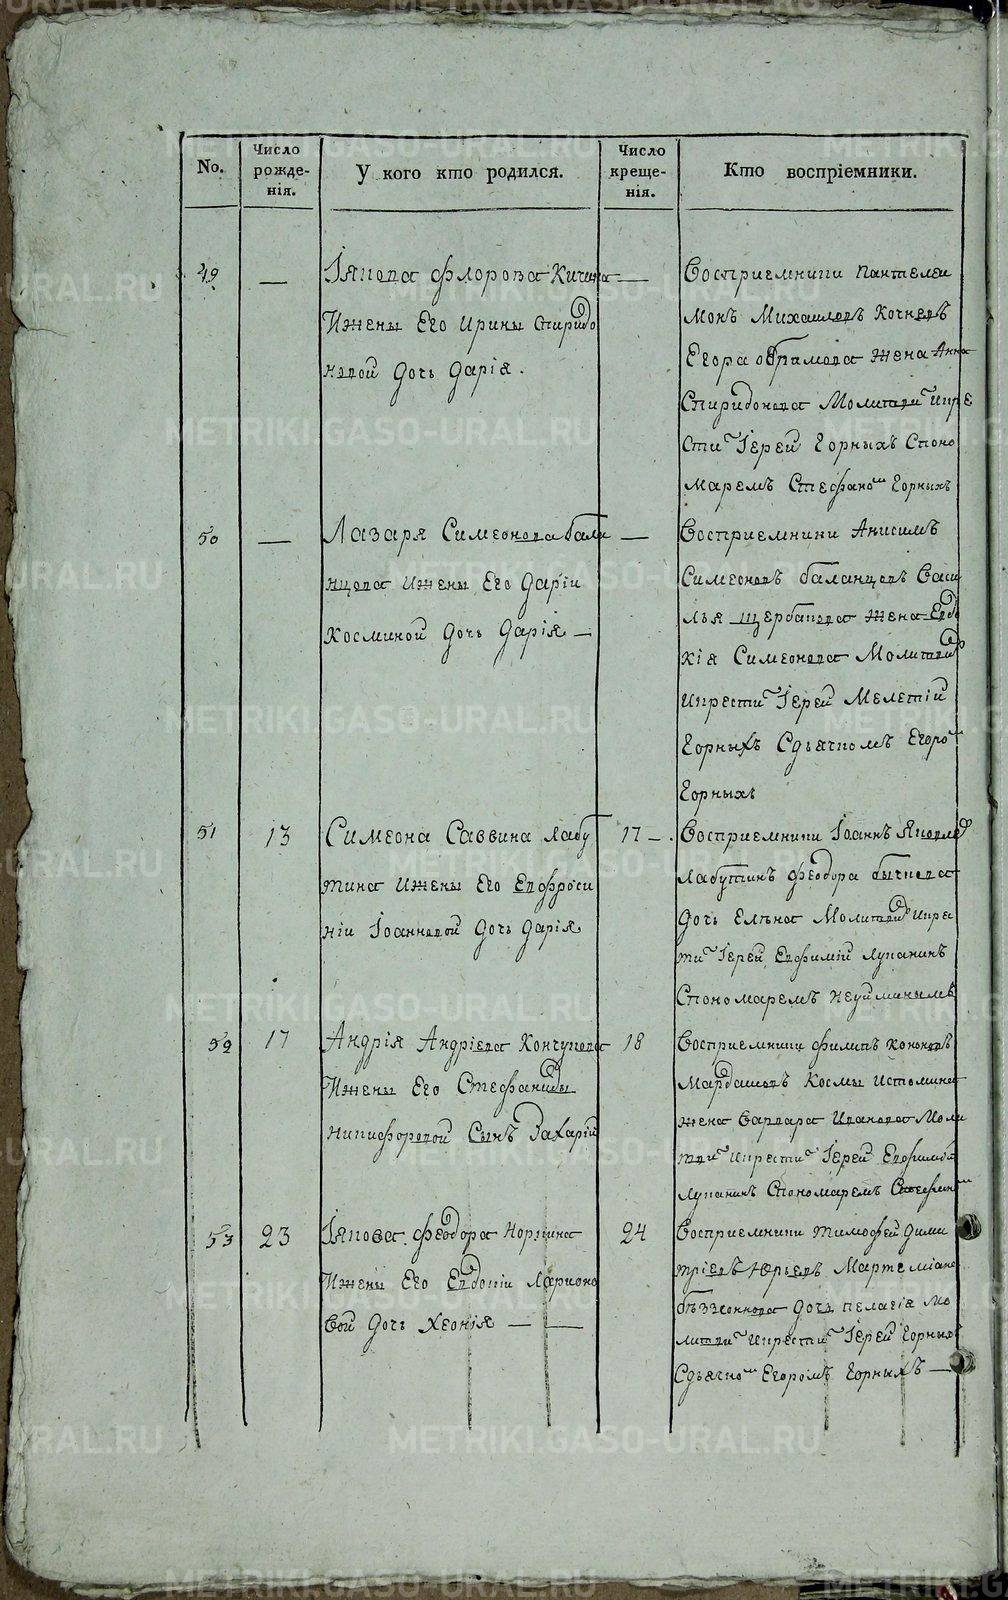 No.
Число рожде- нія.
У кого кто родился.
Число креще- нія.
Кто воспріемники.
49
—
Іякова Флорова
Ижены Его Ирины Спиридо
новой дочь Дарія.
—
Восприемники Пантелей
монъ Михаиловъ Кочневъ
Егора Абрамова жена Анна
Спиридонова Молитви Икре
сти Іерей Горныхъ Споно
маремъ Стефаном Горныхъ
50
—
Лазаря Симеонова бала
нцова Ижены Его Даріи
Косминой дочь Дарія —
—
Восприемники Анисимъ
Симеоновъ баланцовъ Васи
лья щербакова жена Евдо
кія Симеонова Молитви
Икрести Іерей Мелетій
Горныхъ Сдьячкомъ Егоро
Горныхъ
51
13
Симеона Саввина Лабу
тина Ижены Его Евфроси
ніи Іоанновой дочь Дарія
17 —
Восприемники Іоаннъ Яковлев
Лабутинъ Феодора бычкова
дочь Елѣна Молитви Икрес
ти Іерей Евфимій Лупанинъ
Спономаремъ Неуйминымъ
52
17
Андрія Андріева
Ижены Его Стефаниды
Никифоровой Сынъ Захарій
18
Восприемники Филипъ Кононовъ
Мардашовъ Космы Истомина
жена Варвара Иванова Моли
тви Икрести Іерей Евфимій
Лупанинъ Спономаремъ
53
23
Іякова Феодора
Ижены Его Евдокіи Ларионо
вой дочь Хеонія — —
24
Восприемники Тимофей Дими
тріевъ Юрьевъ Мартеміана
дочь Пелагія Мо
литви Икрести Іерей Горныхъ
Сдьячко Егоромъ Горныхъ —
METRIKI.GASO-URAL.RU